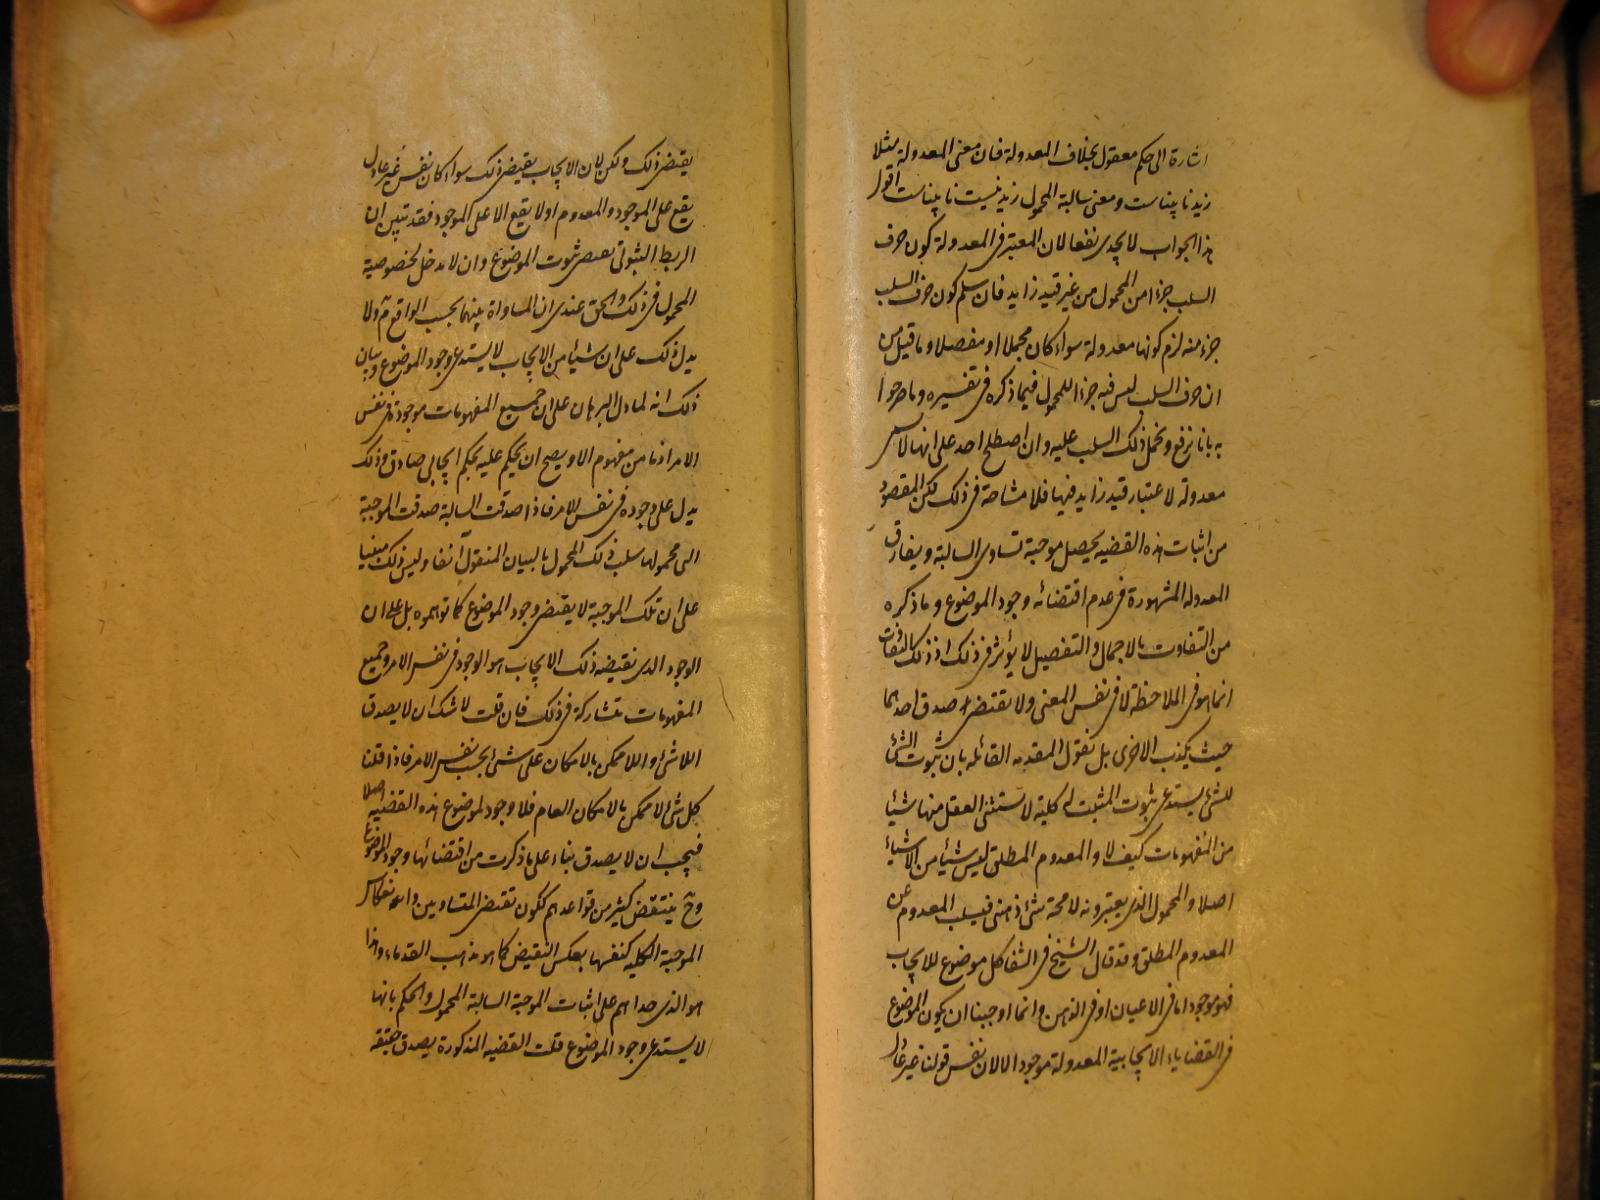 اشارة الى حكم معقول بخلاف المعدولة فان معنى المعدولة مثلا
زيد نا بيناست و معنى سالبة المحمول زيد نيست نا بيناست اقول
هذا الجواب لا يجدى نفعا لان المعتبر فى المعدولة كون حرف
السلب جزءا من المحمول من غير قيد زايد فان سلم كون حرف السلب
جزء منه لزم كونها معدولة سواء كان مجملا او مفصلا و ما قيل من
ان حرف السلب ليس فيه جزءا للمحمول فيما ذكره فى تفسيره و ما صرحوا
به بانا نرفع و نحمل ذلك السلب عليه و ان اصطلح احد على انها لا
معدولة لاعتبار قيد زايد فيها فلا مشاحة فى ذلك لكن المقصود
من اثبات هذه القضيه تحصيل موجبة تساوى السالبة و يفارق
المعدولة المشهورة فى عدم اقتضائه وجود الموضوع و ما ذكره
من التفاوت بالاجمال و التفصيل لا يؤثر فى ذلك اذ ذلك التفاوت
انما هو فى الملاحظة لا فى نفس المعنى ولا يقتضى صدق احدهما
حيث يكذب الاخرى بل نقول المقدمه القائله بان ثبوت الشئ
للشئ يستدعى ثبوت المثبت له كلية لا يستثنى العقل منها شيئا
من المفهومات كيف لا و المعدوم المطلق ليس شيئا من الاشياء
اصلا و المحمول الذى يعتبرونه لا محة شئ ذهنى فيسلب المعدوم عن
المعدوم المطلق و قد قال الشيخ فى الشفا كل موضوع للايجاب
فهو موجود اما فى الاعيان او فى الذهن و انما اوجبنا ان يكون الموضوع
فى القضاياء الايجابية المعدولة موجودا لا لان نفس قولنا غير عادل
يقتضى ذلك ولكن لان الايجاب يقتضى ذلك سواء كان نفس غير عادل
يقع على الموجود و المعدوم او لا يقع الا على الموجود فقد تبين ان
الربط الثبوتى يقتضى ثبوت الموضوع و ان لا مدخل لخصوصية
المحمول فى ذلك و الحق عندى ان المساواة بينهما بحسب الواقع ولا
يدل ذلك على ان شيئا من الايجاب لا يستدعى وجود الموضوع و بيان
ذلك انه لما دل البرهان على ان جميع المفهومات موجودة فى نفس
الامر اذ ما من مفهوم الا و يصح ان يحكم عليه بحكم ايجابى صادق و ذلك
يدل على وجوده فى نفس الامر فاذا صدقت السالبة صدقت الموجبة
التى محمولها سلب ذلك المحمول بالبيان المنقول آنفا و ليس ذلك مبنيا
على ان تلك الموجبة لا يقتضى وجود الموضوع كما توهموه بل على ان
الوجود الذى تقتضيه ذلك الايجاب هو الوجود فى نفس الامر و جميع
المفهومات متشاركة فى ذلك فان قلت لا شك ان لا يصدق
اللاشئ او اللاممكن بالامكان على شئ بحسب نفس الامر فاذا قلنا
كل شئ لا ممكن بالامكان العام فلا وجود لموضوع هذه القضيه اصلا
فيجب ان لا يصدق بناء على ما ذكرت من اقتضائها وجود الموضوع
و ح ينتقض كثير من قواعدهم ككون نقيضى المتساويين و انعكاس
الموجبة الكليه كنفسها بعكس النقيض كما هو مذهب القدماء و هذا
هو الذى حداهم على اثبات الموجبة السالبة المحمول و الحكم بانها
لا يستدعى وجود الموضوع قلت القضيه المذكورة يصدق حقيقه